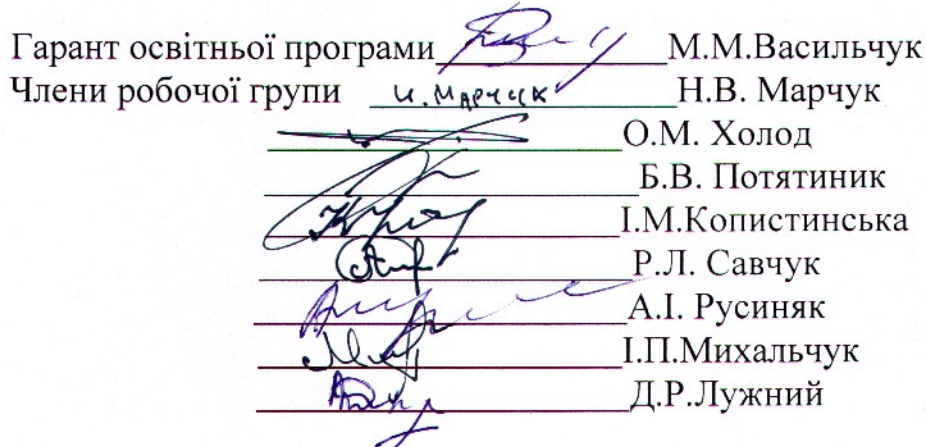 Гарант освітньої програми М.М.Васильчук
Члени робочої групи и. Марчук Н.В. Марчук
О.М. Холод
Б.В. Потятиник
І.М.Копистинська
Р.Л. Савчук
А.І. Русиняк
І.П.Михальчук
Д.Р.Лужний